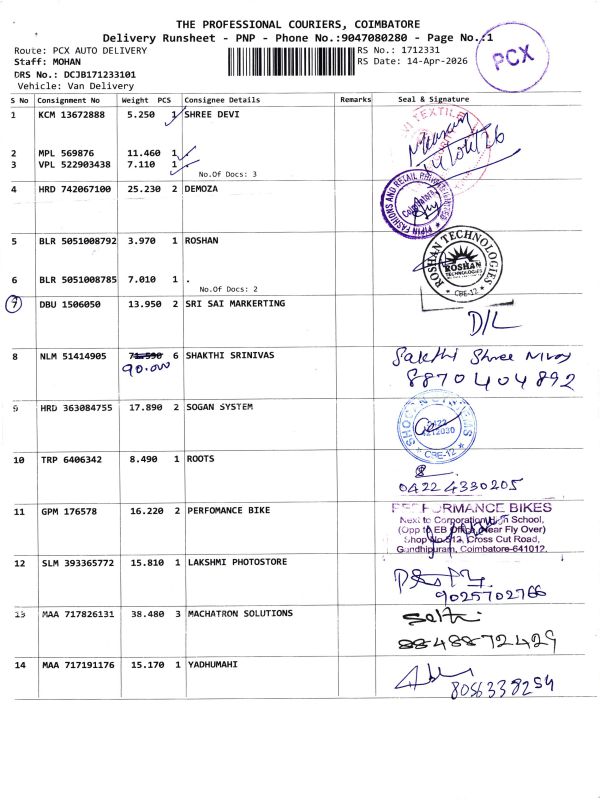 THE PROFESSIONAL COURIERS, COIMBATORE
Delivery Runsheet - PNP - Phone No.:9047080280 - Page No.:1
Route: PCX AUTO DELIVERY
RS No.: 1712331
Staff: MOHAN
RS Date: 14-Apr-2026
DRS No.: DCJB171233101
Vehicle: Van Delivery
PCX
S No Consignment No Weight PCS Consignee Details Remarks Seal & Signature
1 KCM 13672888 5.250 1 SHREE DEVI
2 MPL 569876 11.460 1
3 VPL 522903438 7.110 1
No.Of Docs: 3
4 HRD 742067100 25.230 2 DEMOZA
5 BLR 5051008792 3.970 1 ROSHAN
ROSHAN TECHNOLOGIES
ROSHAN
TECHNOLOGIES
CBE-12
6 BLR 5051008785 7.010 1 .
No.Of Docs: 2
7 DBU 1506050 13.950 2 SRI SAI MARKERTING
D/L
8 NLM 51414905 71.590 6 SHAKTHI SRINIVAS
90.000
8870404892
9 HRD 363084755 17.890 2 SOGAN SYSTEM
CBE-12
10 TRP 6406342 8.490 1 ROOTS
04224330205
11 GPM 176578 16.220 2 PERFOMANCE BIKE
PERFORMANCE BIKES
Next to Corporation High School,
(Opp to EB Office, Near Fly Over)
Shop No.513, Cross Cut Road,
Gandhipuram, Coimbatore-641012.
12 SLM 393365772 15.810 1 LAKSHMI PHOTOSTORE
9025702766
13 MAA 717826131 38.480 3 MACHATRON SOLUTIONS
8848872429
14 MAA 717191176 15.170 1 YADHUMAHI
8056338254